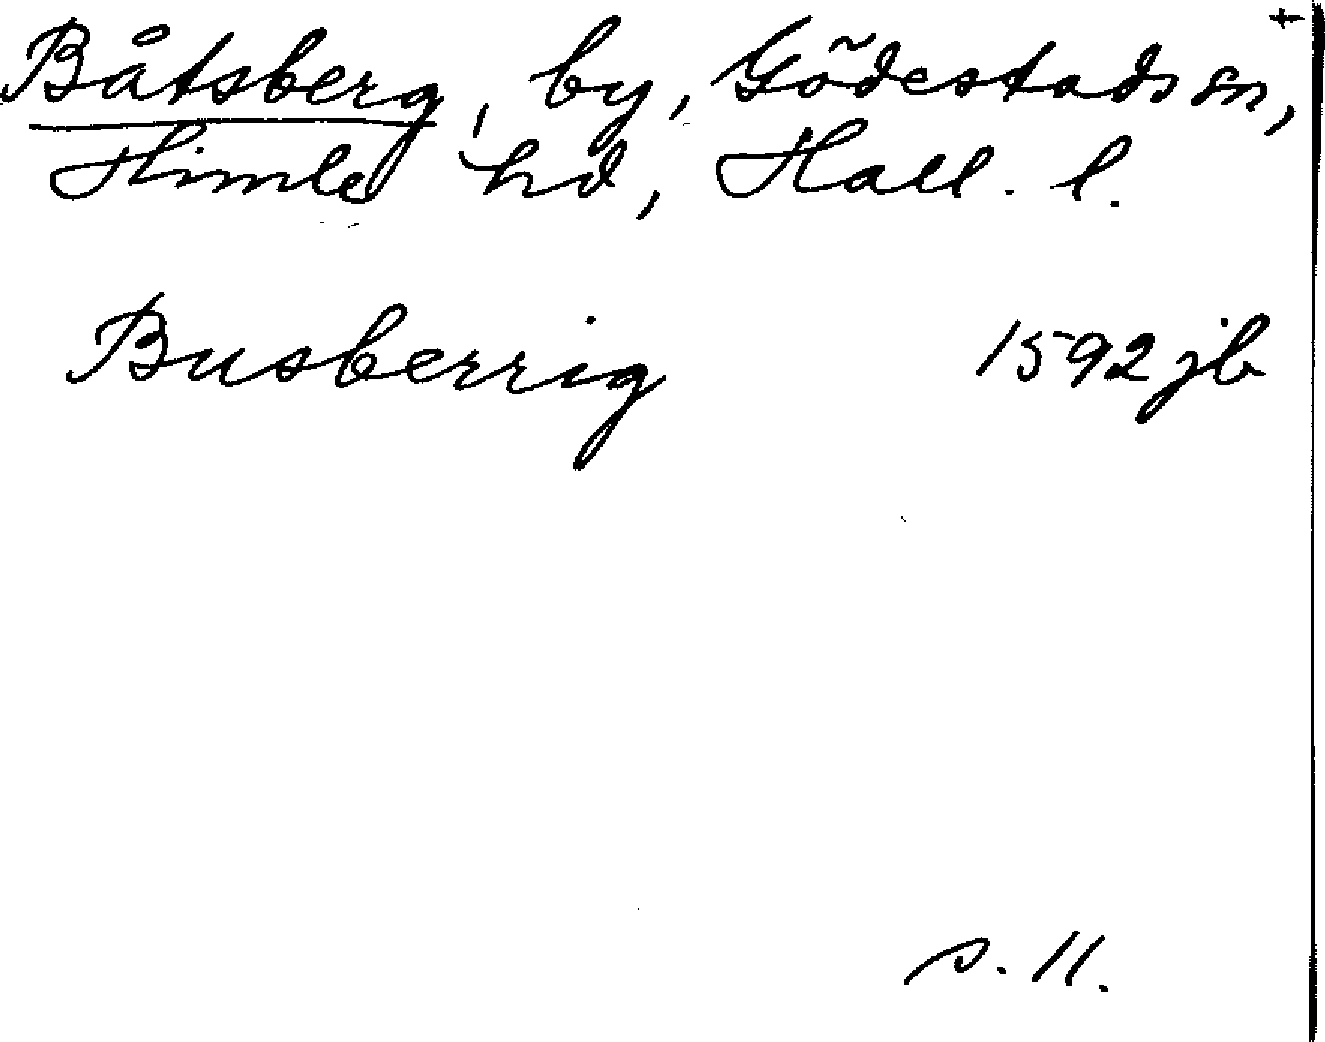 Båtsberg, by, Gödestads sn,
Himle hd, Hall. l.
Busberrig 1592 jb
s. 11.